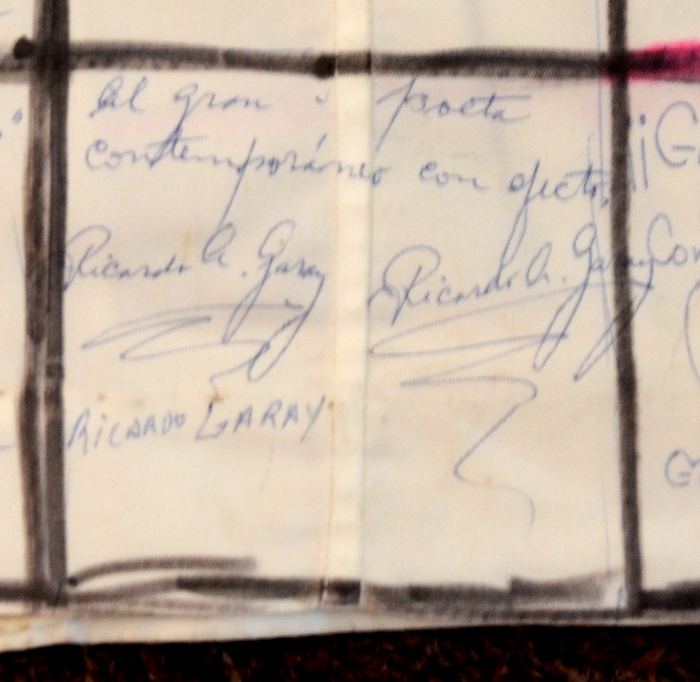 Al gran poeta
contemporáneo con afecto,
Ricardo A. Garay Ricardo A. Garay
RICARDO GARAY
¡¡G
Con
G